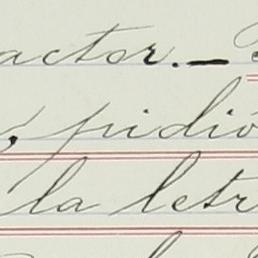 actor.—
, pidió
la letr